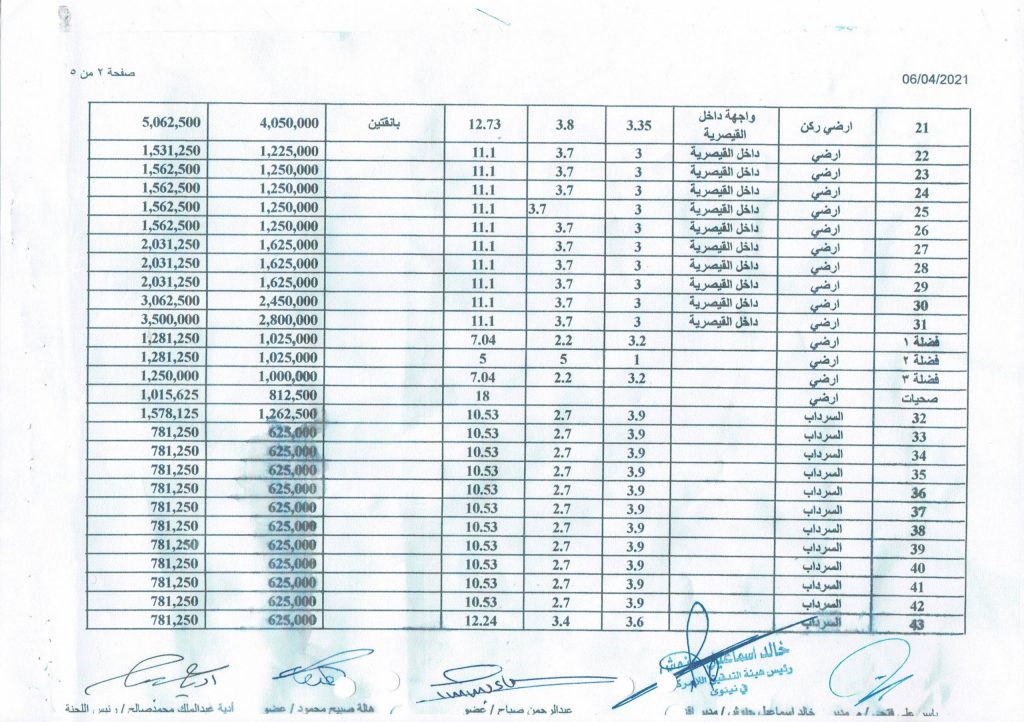 صفحة ٢ من ٥
06/04/2021
21 ارضي ركن واجهة داخل القيصرية 3.35 3.8 12.73 بانقتين 4,050,000 5,062,500
22 ارضي داخل القيصرية 3 3.7 11.1 1,225,000 1,531,250
23 ارضي داخل القيصرية 3 3.7 11.1 1,250,000 1,562,500
24 ارضي داخل القيصرية 3 3.7 11.1 1,250,000 1,562,500
25 ارضي داخل القيصرية 3 3.7 11.1 1,250,000 1,562,500
26 ارضي داخل القيصرية 3 3.7 11.1 1,250,000 1,562,500
27 ارضي داخل القيصرية 3 3.7 11.1 1,625,000 2,031,250
28 ارضي داخل القيصرية 3 3.7 11.1 1,625,000 2,031,250
29 ارضي داخل القيصرية 3 3.7 11.1 1,625,000 2,031,250
30 ارضي داخل القيصرية 3 3.7 11.1 2,450,000 3,062,500
31 ارضي داخل القيصرية 3 3.7 11.1 2,800,000 3,500,000
فضلة ١ ارضي 3.2 2.2 7.04 1,025,000 1,281,250
فضلة ٢ ارضي 1 5 5 1,025,000 1,281,250
فضلة ٣ ارضي 3.2 2.2 7.04 1,000,000 1,250,000
صحيات ارضي 18 812,500 1,015,625
32 السرداب 3.9 2.7 10.53 1,262,500 1,578,125
33 السرداب 3.9 2.7 10.53 625,000 781,250
34 السرداب 3.9 2.7 10.53 625,000 781,250
35 السرداب 3.9 2.7 10.53 625,000 781,250
36 السرداب 3.9 2.7 10.53 625,000 781,250
37 السرداب 3.9 2.7 10.53 625,000 781,250
38 السرداب 3.9 2.7 10.53 625,000 781,250
39 السرداب 3.9 2.7 10.53 625,000 781,250
40 السرداب 3.9 2.7 10.53 625,000 781,250
41 السرداب 3.9 2.7 10.53 625,000 781,250
42 السرداب 3.9 2.7 10.53 625,000 781,250
43 السرداب 3.6 3.4 12.24 625,000 781,250
خالد اسماعيل
رئيس هيئة التدقيق
في نينوى
خالد اسماعيل / مدير
عبدالرحمن صباح / عضو
هالة صبيح محمود / عضو
أدية عبدالملك محمدصالح / رئيس اللجنة